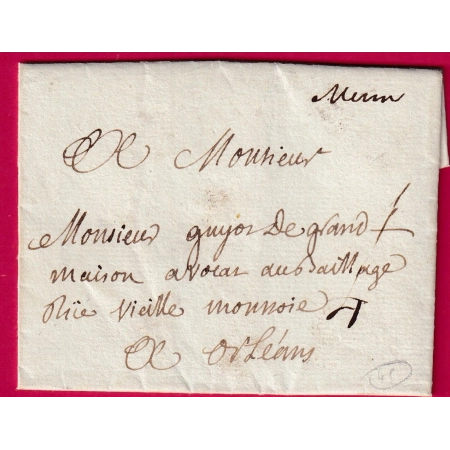 Mun
A Monsieur
Monsieur guyot de grand
maison avocat au baillage
Rüe vieille monnoie 4
A orléans